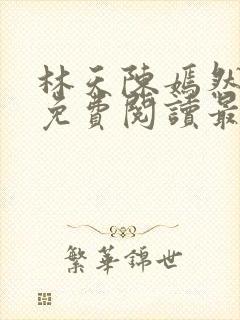 林天陳嫣然
免費閱讀最
繁華錦世